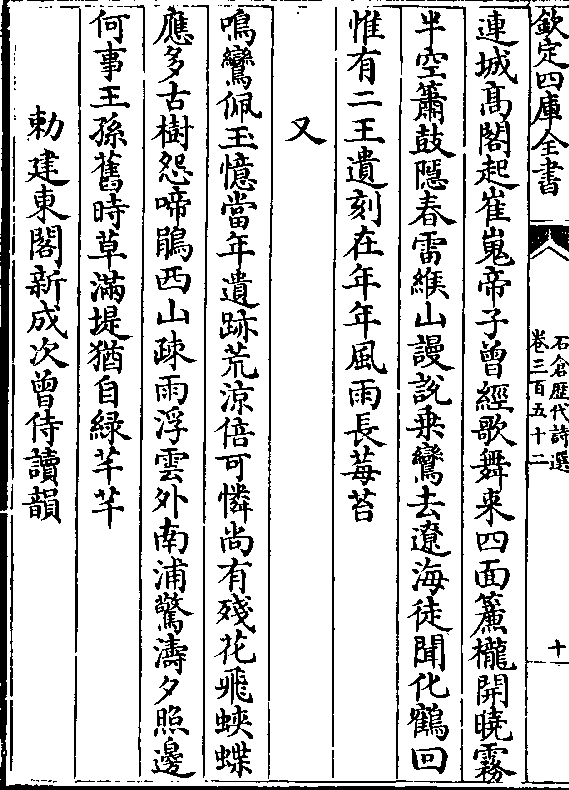 欽定四庫全書
石倉歴代詩選
卷三百五十二
十
連城髙閣起崔嵬帝子曾經歌舞来四面簾櫳開曉霧
半空簫鼓隱春雷緱山謾説乗鸞去遼海徒聞化鶴回
惟有二王遺刻在年年風雨長莓苔
又
鳴鸞佩玉憶當年遺跡荒涼倍可憐尚有殘花飛蛺蝶
應多古樹怨啼鵑西山疎雨浮雲外南浦驚濤夕照邊
何事王孫舊時草滿堤猶自緑芊芊
勅建東閣新成次曾侍讀韻